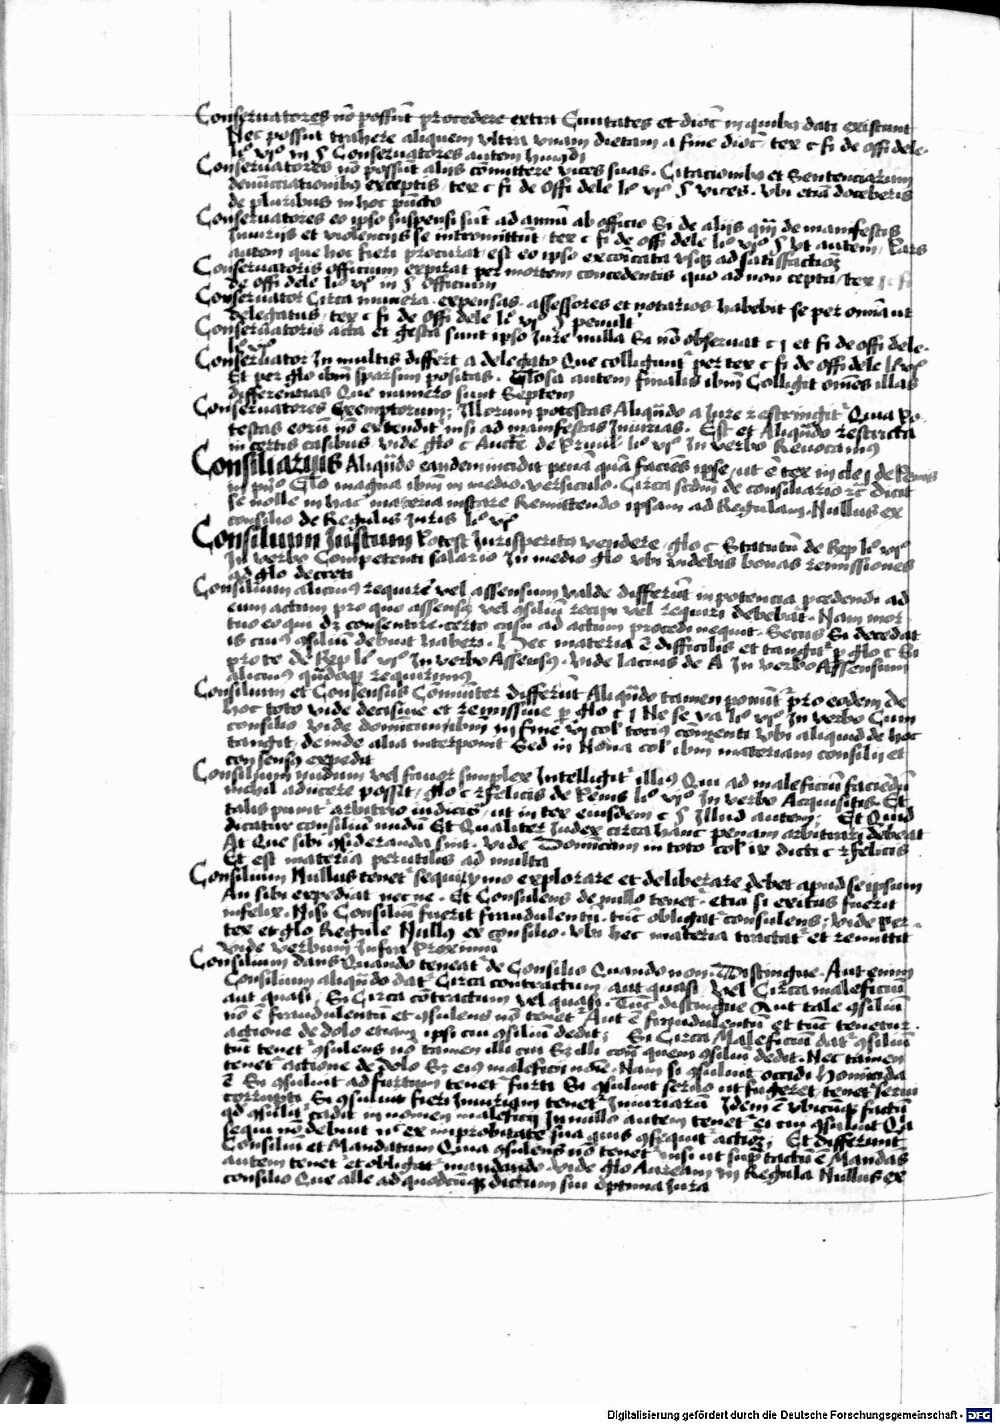 Conseruatores nō possūt procedere extra Ciuitates et dioc̄ in quibꝰ dati existunt
Nec possūt trahere aliquem vltra vnam dietam a fine dioc̄ / tex c fi de offi dele
lꝰ vjº in § Conseruatores autem
Conseruatores nō possūt alijs cōmittere vices suas. Citacionibꝰ et Sentenciarum
denūcciationibꝰ exceptis / tex c fi de offi dele lꝰ vjº § vices. Vbi etiā doceberis
de pluribus in hoc pūcto
Conseruatores eo ipso suspensi sūt ad annū ab officio Si de alijs qm̄ de manifestis
Iniurijs et violencijs se intromittūt / tex c fi de offi dele lꝰ vjº § Vt autem / Pars
autem que hoc fieri procurat / est eo ipso excōicata vsqꝫ ad satisfactioꝫ
Conseruatoris officium expirat per mortem concedentis quo ad non cepta / tex c fi
de offi dele lꝰ vjº in § officium
Conseruator Circa munera. expensas. assessores et notarios habebit se per omīa ut
delegatus / tex c fi de offi dele lꝰ vjº § penult
Conseruatoris acta et gesta sunt ipso Iure nulla Si nō obseruat c j et fi de offi dele.
lꝰ vjº
Conseruator In multis differt a delegato Que colligunt᷑ per tex c fi de offi dele lꝰ vjº
Et per glo ibm̄ sparsim positas. Glosa autem finalis ibm̄ Colligit om̄es illas
differencias Que numero sunt Septem
Conseruatores Exemptorum; Illorum potestas Aliqn̄do a Iure restringit᷑ Quia Po⸗
testas eorū nō extendit᷑ nisi ad manifestas Iniurias. Est et Aliqn̄do restricta
in certis casibus vide glo c Aucte de Priuil lꝰ vjº in verbo Reuocamꝰ
Consiliarijs Aliqn̄do eandem incidit penā quā faciēs ipse / ut ē tex in cle j de Penis
in Glo magna ibm̄ in medio. versiculo. Circa scdm̄ de consiliario ꝛc̄ dicit
se nolle in hac materia instare Remittendo ipsam ad Regulam. Nullus ex
consilio de Regulis Iuris lꝰ vjº
Consilium Iustum Potest Iurisperitꝰ vendere / glo c Statutū de Rep lꝰ vjº
In verbo Competenti salario In medio glo vbi videbis bonas remissiones
ad glo decreti
Consilium alicuiꝰ requirē vel assensum valde differūt in potencia pcedendi ad
eum actum pro quo assensꝰ vel ꝯsiliū recipi vel requiri debebat. Nam mor⸗
tuo eo qui dꝫ consentire. certo casu ad actum procedi nequit. Secus Si decedat
is cuiꝰ ꝯsiliū debuit haberi. Hec materia ē difficilis et tangit᷑ p glo c Si
pro te de Rep lꝰ vjº In verbo Assensꝰ. Vide lacius de A In verbo Assensum
alicuiꝰ qn̄doqꝫ requirimꝰ
Consilium et Consensus Cōmūiter differūt Aliqn̄do tamen ponūt᷑ pro eodem de
hoc toto vide decisiue et remissiue p glo c j Ne se va lꝰ vjº In verbo Cum
consilio vide domicum ibm̄ in fine vj col tocius cōmenti Vbi aliquid de hoc
tangit. deinde alia interponit Sed in Nona col ibm̄ materiam consilij et
consensꝰ expedit
Consilium nudum vel fauor simplex Intelligit᷑ illiꝰ Qui ad maleficiū faciēdū
inchil aducere possit / glo c felicis de Penis lꝰ vjº In verbo Acquisitis. Et
talis punit᷑ arbitrio iudicis / ut in tex eiusdem c § Illud autem; Et Quid
dicatur consiliū nudū Et Qualiter Iudex circa hanc penam arbitrari debeat
At Que sibi ꝯsideranda sint. Vide Domicum in toto col ix dicti c felicis
Et est materia perutilis ad multa
Consilium Nullus tenet᷑ sequi ymo explorare et deliberare debet apud seipsum
An sibi expediat nec ne. Et Consulens de nullo tenet᷑. etiā si exitus fuerit
infelix. Nisi Consiliū fuerit fraudulentū. tūc obligat᷑ consulens; Vide per
tex et glo Regule Nullꝰ ex consilio. Vbi hec materia tractat᷑ et remittit
vide verbum Infra proximum
Consilium dans Quando teneat᷑ de Consilio Quando non. Distingue. Aut enim
Consilium aliqn̄do dat᷑ Circa contractum aut quasi Vel Circa maleficiū
aut quasi; Si Circa cōtractum vel quasi. Tūc distingue Aut tale ꝯsiliū
nō ē fraudulentū et ꝯsulens nō tenet᷑ Aut ē fraudulentū et tūc tenetur.
actione de dolo etiam ipsi cui ꝯsiliū dedit; Si Circa Maleficiū dat᷑ ꝯsiliū
tūc tenet᷑ ꝯsulens nō tamen illi cui Sꝫ illi cont᷑ quem ꝯsiliū dedit. Nec tamen
tenet᷑ actione de dolo Sꝫ eiꝰ maleficij noīe. Nam si ꝯsuluit occidi Homicida
ē Si ꝯsuluit ad furtum tenet᷑ furti Si ꝯsuluit seruo ut fugeret / tenet᷑ serui
corrupti Si ꝯsuluit fieri Iniuriam tenet᷑ Iniuriarū Idem ē vbicūqꝫ factū
qd ꝯsulit᷑ cadit in nomen maleficij In nullo autem tenet᷑ ei cui ꝯsuluit Quia
sequi nō debuit ex improbitate sua quis ꝯsequit᷑ actioꝫ; Et differunt
Consiliū et Mandatum Quia ꝯsulens nō tenet᷑ nisi ut supra tractū ē Mandās
autem tenet᷑ et obligat᷑ mandando. Vide glo Aurelam in Regula Nullus ex
consilio Que alle ad quodcūqꝫ dictum sui optima Iura
Digitalisierung gefördert durch die Deutsche Forschungsgemeinschaft - DFG